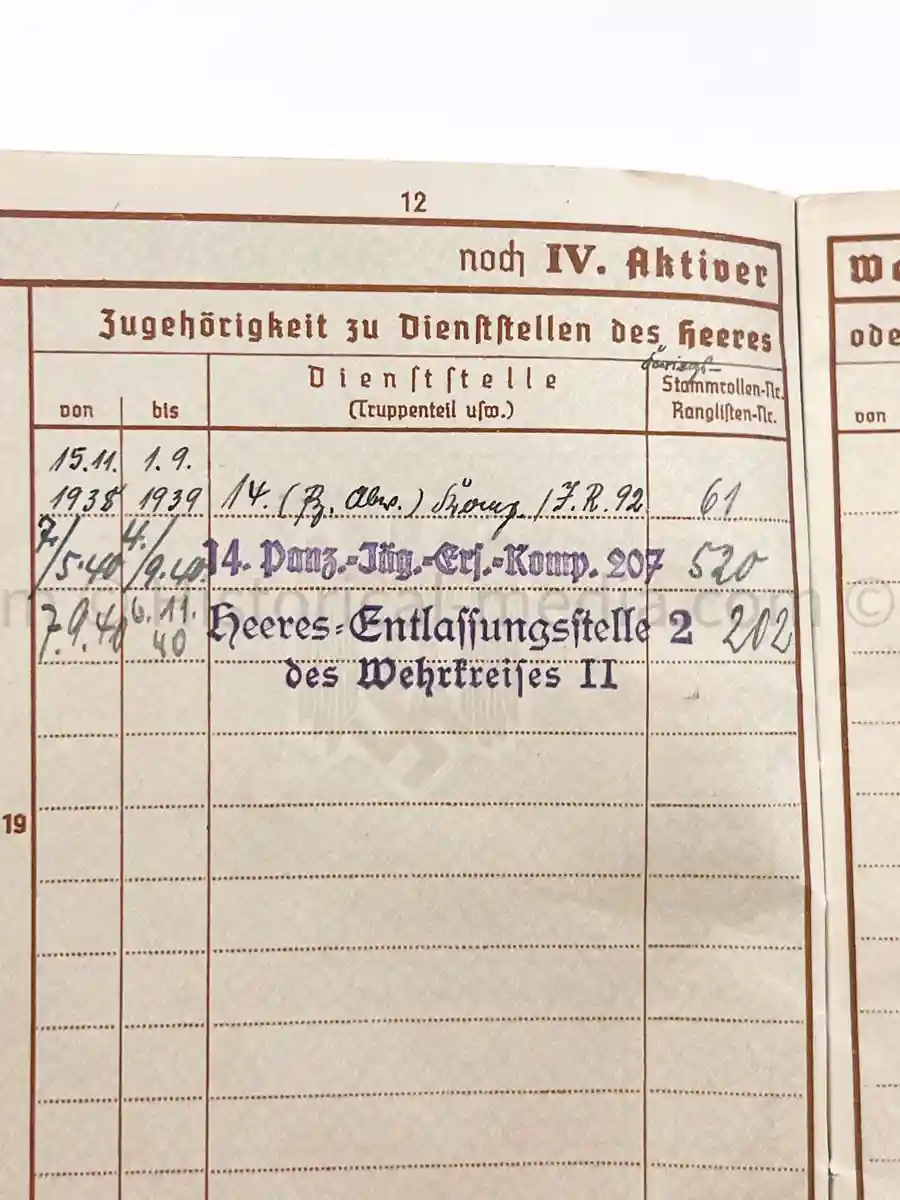 12
noch IV. Aktiver
Zugehörigkeit zu Dienststellen des Heeres
von
bis
Dienststelle
(Truppenteil usw.)
Kriegs-
Stammrollen-Nr.
Ranglisten-Nr.
15.11. 1.9.
1938 1939 14. (Pz. Abw.) Komp. / J.R. 92 61
7./5.40 4./9.40. 14. Panz.-Jäg.-Ers.-Komp. 207 520
7.9.40 6.11.40 Heeres-Entlassungsstelle 2 202
des Wehrkreises II
19
ode
von
©